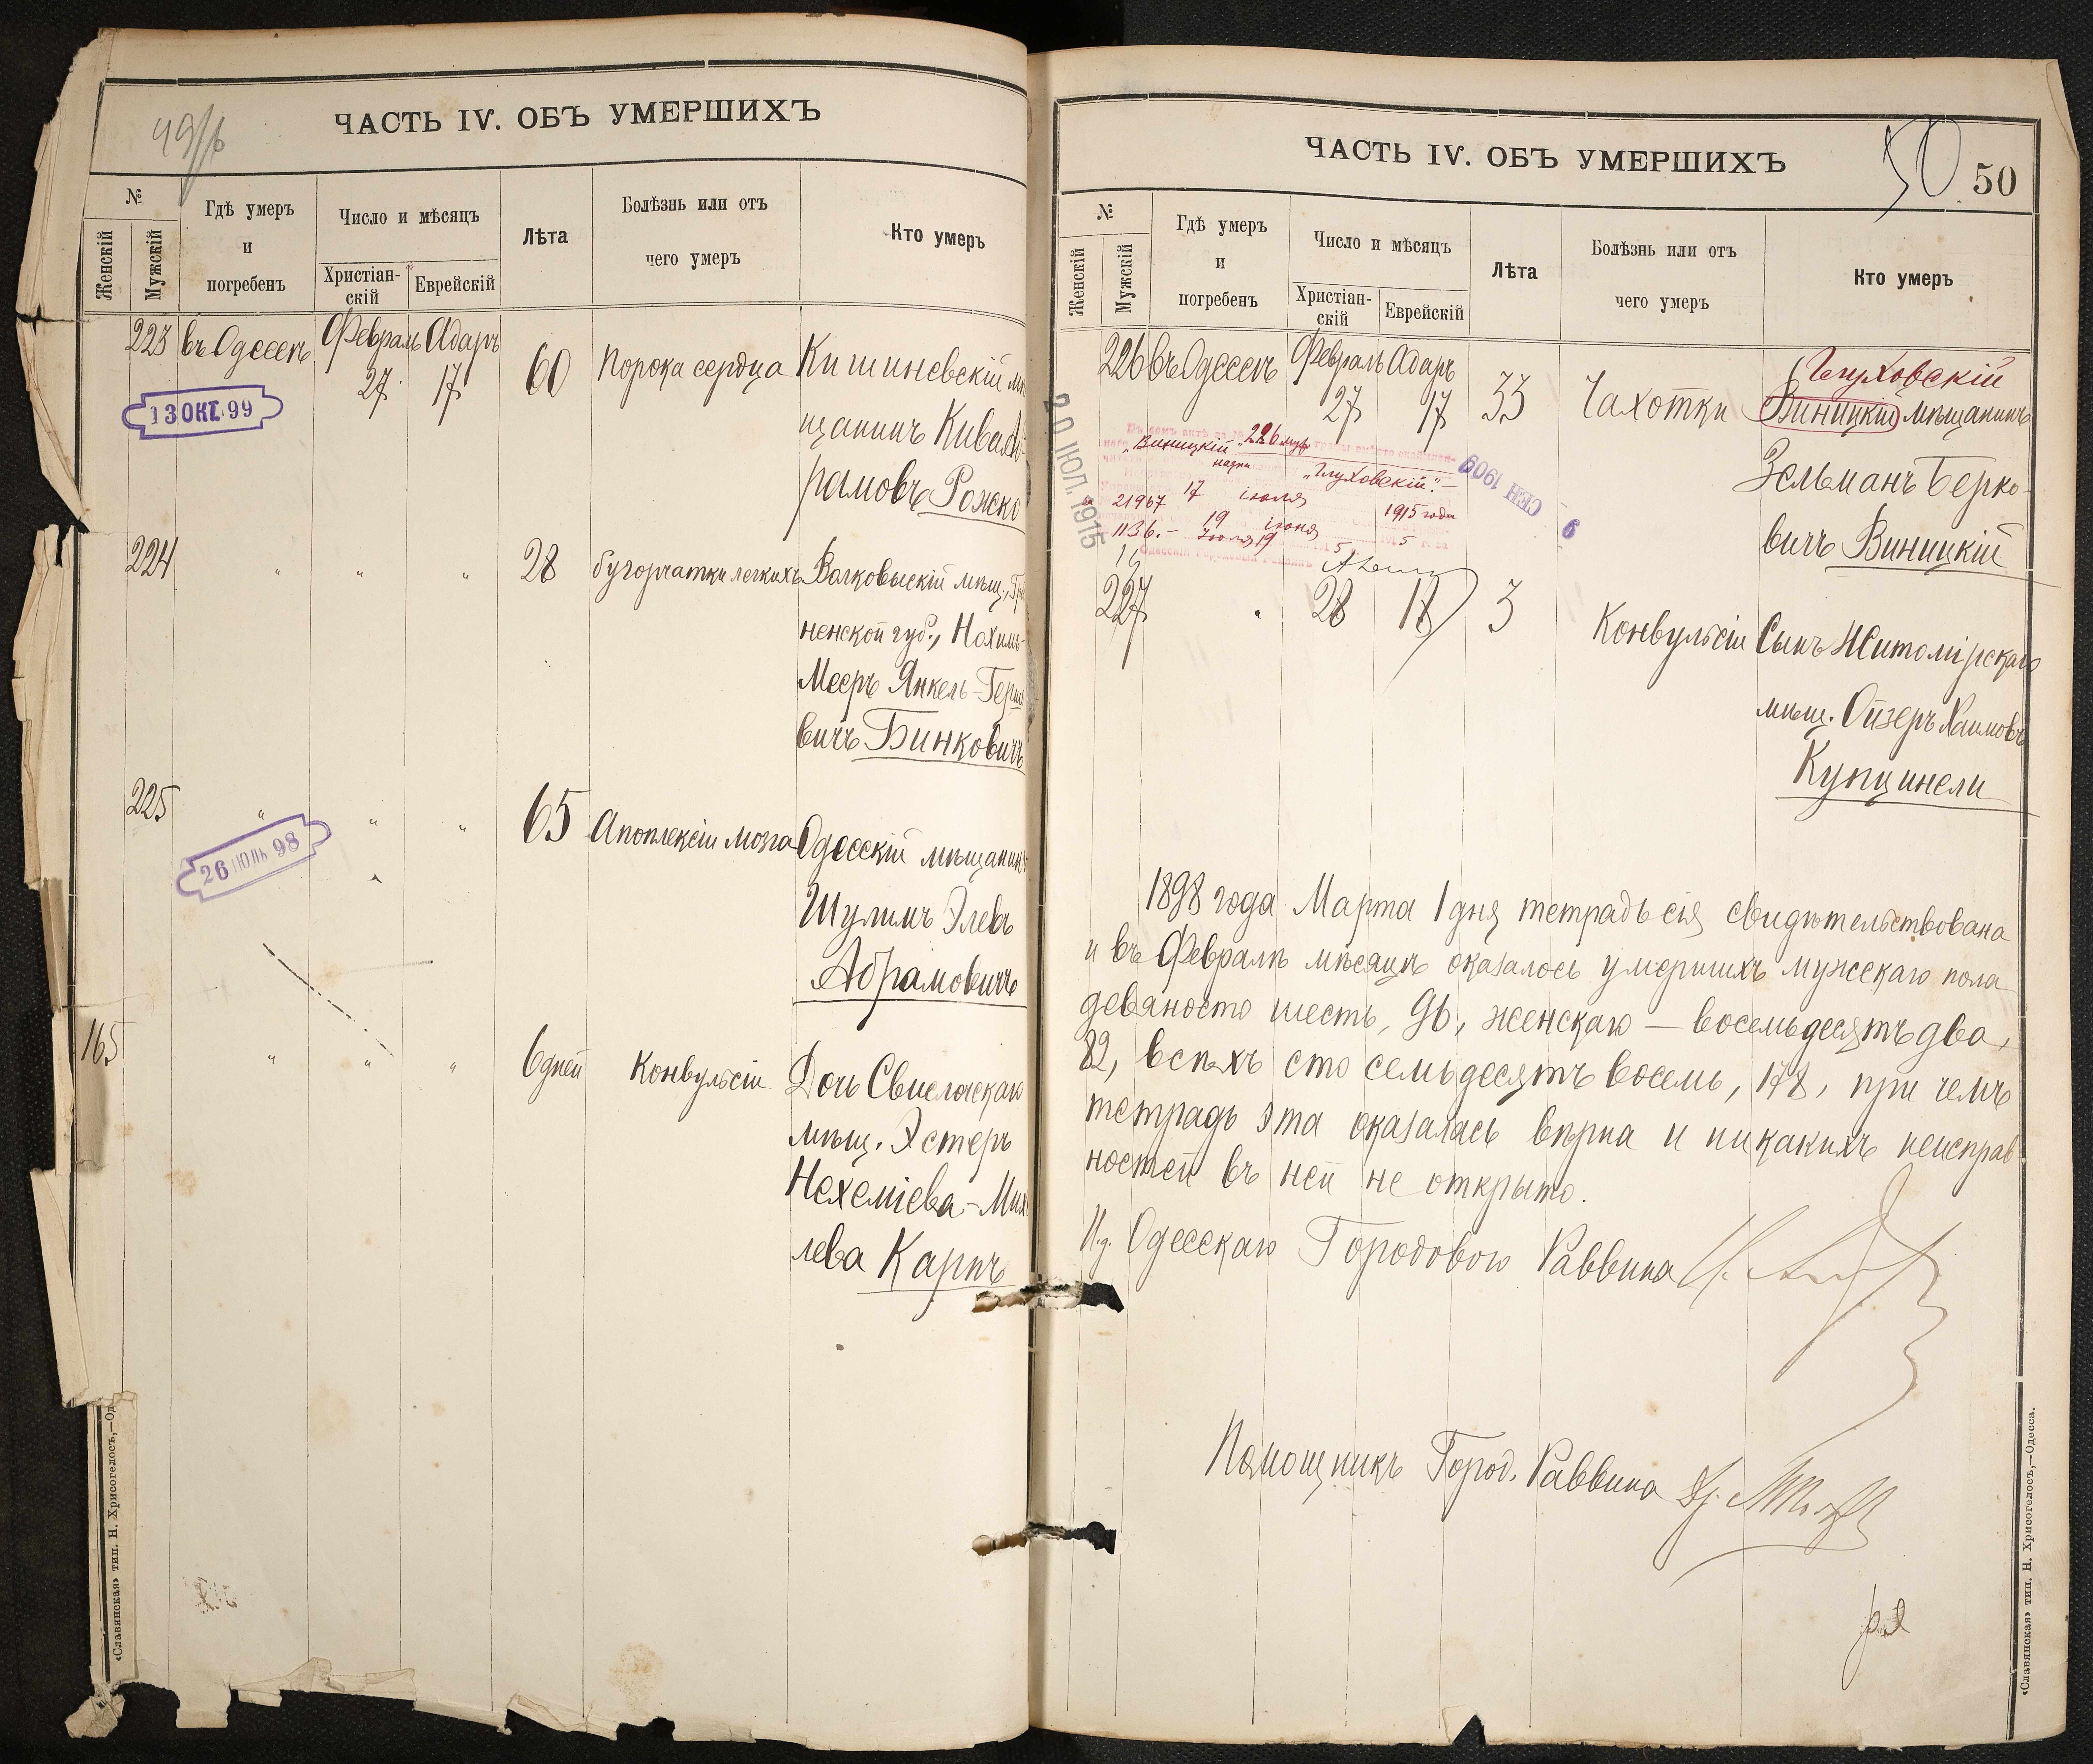 ЧАСТЬ IV. ОБЪ УМЕРШИХЪ
№
Женскій
Мужскій
Гдѣ умеръ
и
погребенъ
Число и мѣсяцъ
Христіан-
скій
Еврейскій
Лѣта
Болѣзнь или отъ
чего умеръ
Кто умеръ
223 въ Одессѣ Февраль Адаръ
27 17 60 Порока сердца Кишиневскій
13 ОКТ. 99
щанинъ Кива
рамовъ Рожско
224 " " " 28 бугорчатки легкихъ Волковыскій мѣщ.,
ненской губ., Нохимъ-
Мееръ Янкель-Герш
вичъ Бинковичъ
225 " " " 65 Апоплексіи мозга Одесскій мѣщанин
26 ІЮНЬ 98
Шулимъ Элевъ
Абрамовичъ
165 " " " 6 дней Конвульсіи Дочь Свислочскаго
мѣщ. Эстеръ
Нехеміева-Мих
лева Карпъ
«Славянская» тип. Н. Хрисогелосъ,—Од
ЧАСТЬ IV. ОБЪ УМЕРШИХЪ
50 50
№
Женскій
Мужскій
Гдѣ умеръ
и
погребенъ
Число и мѣсяцъ
Христіан-
скій
Еврейскій
Лѣта
Болѣзнь или отъ
чего умеръ
Кто умеръ
Глуховскій
226 въ Одессѣ Февраль Адаръ
27 17 33 Чахотки Виницкій мѣщанинъ
Зельманъ Берко-
вичъ Виницкій
20 ІЮЛ. 1915
226 муж
„Виницкій
„Глуховскій".—
21967 17 іюля 1915 года
1136.— 19 іюня
9 СЕН 1909
227 " 28 18 3 Конвульсіи Сынъ Житомірскаго
мѣщ. Ойзеръ Хаимовъ
Купцинели
1898 года Марта 1 дня тетрадь сія свидѣтельствована
и въ Февралѣ мѣсяцѣ оказалось умершихъ мужскаго пола
девяносто шесть, 96, женскаго — восемьдесятъ два,
82, всѣхъ сто семьдесятъ восемь, 178, при чемъ
тетрадь эта оказалась вѣрна и никакихъ неисправ-
ностей въ ней не открыто.
И.д. Одесскаго Городового Раввина
Помощникъ Город. Раввина
«Славянская» тип. Н. Хрисогелосъ,—Одесса.